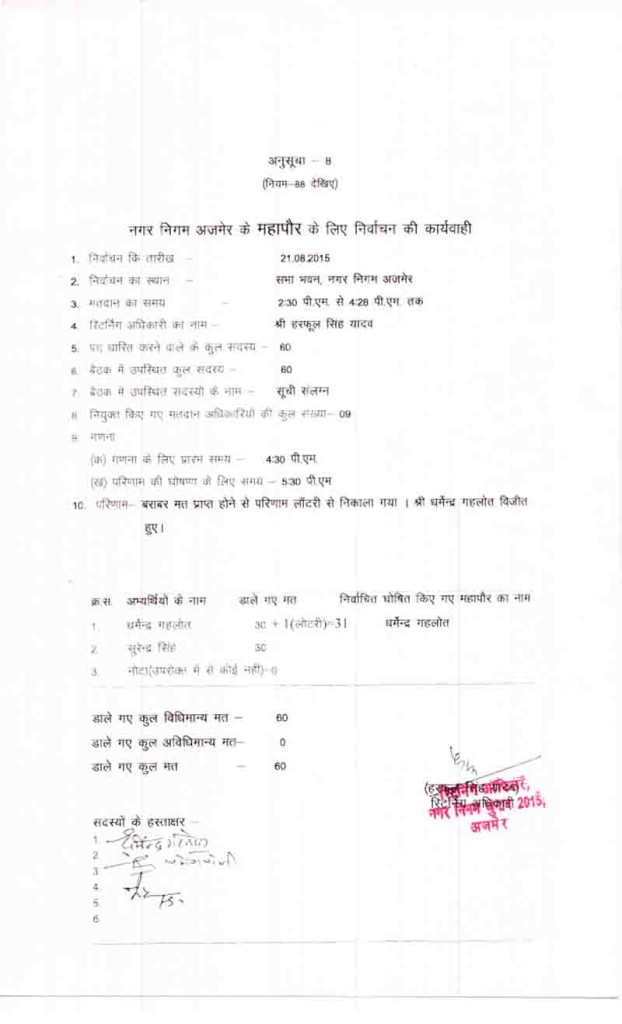 अनुसूचा – 8
(नियम–88 देखिए)
नगर निगम अजमेर के महापौर के लिए निर्वाचन की कार्यवाही
1. निर्वाचन कि तारीख – 21.08.2015
2. निर्वाचन का स्थान – सभा भवन, नगर निगम अजमेर
3. मतदान का समय – 2:30 पी.एम. से 4:28 पी.एम. तक
4. रिटर्निंग अधिकारी का नाम – श्री हरफूल सिंह यादव
5. पद धारित करने वाले के कुल सदस्य – 60
6. बैठक में उपस्थित कुल सदस्य – 60
7. बैठक में उपस्थित सदस्यो के नाम – सूची संलग्न
8. नियुक्त किए गए मतदान अधिकारियों की कुल संख्या– 09
9. गणना
(क) गणना के लिए प्रारंभ समय – 4:30 पी.एम.
(ख) परिणाम की घोषणा के लिए समय – 5:30 पी.एम
10. परिणाम– बराबर मत प्राप्त होने से परिणाम लॉटरी से निकाला गया । श्री धर्मेन्द्र गहलोत विजीत
हुए।
क्र.सं. अभ्यर्थियो के नाम डाले गए मत निर्वाचित घोषित किए गए महापौर का नाम
1. धर्मेन्द्र गहलोत 30 + 1(लोटरी)=31 धर्मेन्द्र गहलोत
2. सुरेन्द्र सिंह 30
3. नोटा(उपरोक्त में से कोई नहीं)–0
डाले गए कुल विधिमान्य मत – 60
डाले गए कुल अविधिमान्य मत– 0
डाले गए कुल मत – 60
रिटर्निंग
नगर निगम चुनाव 2015,
अजमेर
सदस्यों के हस्ताक्षर –
1.
2.
3.
4.
5.
6.